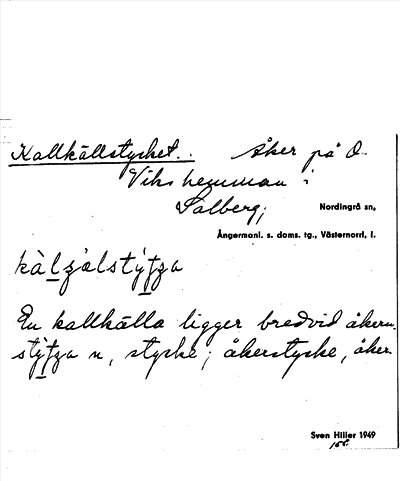 Kallkällstycket. Åker på O.
Viks hemman i
Salberg, Nordingrå sn,
Ångermanl. s. doms. tg., Västernorrl. l.
kàlzàlstýtza
En kallkälla ligger bredvid åkern.
stýtza n, stycke; åkerstycke, åker.
Sven Hiller 1949